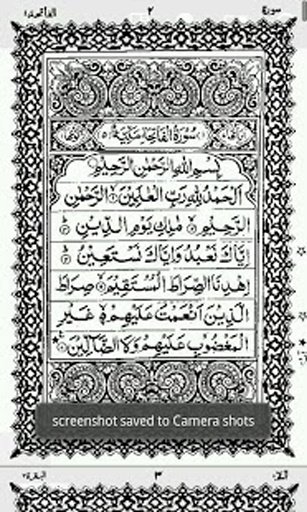 سورة ٢ الفاتحة ١
سُوْرَةُ الْفَاتِحَةِ مَكِّيَّةٌ
بِسْمِ اللهِ الرَّحْمٰنِ الرَّحِيْمِ
اَلْحَمْدُ لِلّٰهِ رَبِّ الْعٰلَمِيْنَ ۙ الرَّحْمٰنِ
الرَّحِيْمِ ۙ مٰلِكِ يَوْمِ الدِّيْنِ ۗ
اِيَّاكَ نَعْبُدُ وَاِيَّاكَ نَسْتَعِيْنُ ۗ
اِهْدِنَا الصِّرَاطَ الْمُسْتَقِيْمَ ۙ صِرَاطَ
الَّذِيْنَ اَنْعَمْتَ عَلَيْهِمْ ۙ غَيْرِ
الْمَغْضُوْبِ عَلَيْهِمْ وَلَا الضَّآلِّيْنَ
screenshot saved to Camera shots
البقرة ٢ ٣ الٓمّٓ ١